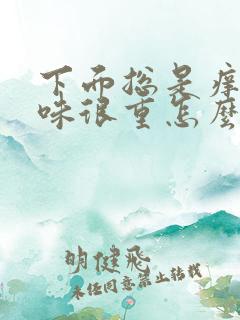 下面总是痒
味很重怎麽
明健飞
未经同意禁止转载